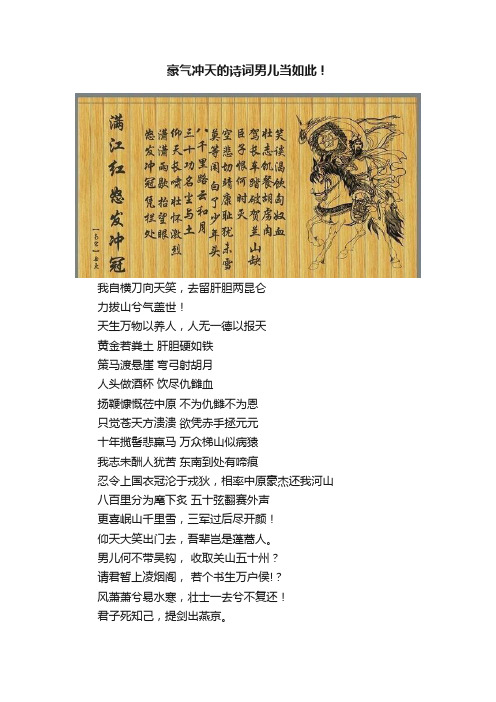 豪气冲天的诗词男儿当如此！
满江红 怒发冲冠
【南宋】岳飞
怒发冲冠凭栏处
潇潇雨歇抬望眼
仰天长啸壮怀激烈
三十功名尘与土
八千里路云和月
莫等闲白了少年头
空悲切靖康耻犹未雪
臣子恨何时灭
驾长车踏破贺兰山缺
壮志饥餐胡虏肉
笑谈渴饮匈奴血
我自横刀向天笑，去留肝胆两昆仑
力拔山兮气盖世！
天生万物以养人，人无一德以报天
黄金若粪土 肝胆硬如铁
策马渡悬崖 弯弓射胡月
人头做酒杯 饮尽仇雠血
扬鞭慷慨莅中原 不为仇雠不为恩
只觉苍天方溃溃 欲凭赤手拯元元
十年揽髻悲羸马 万众梯山似病猿
我志未酬人犹苦 东南到处有啼痕
忍令上国衣冠沦于戎狄，相率中原豪杰还我河山
八百里分为麾下炙 五十弦翻赛外声
更喜岷山千里雪，三军过后尽开颜！
仰天大笑出门去，吾辈岂是蓬蒿人。
男儿何不带吴钩， 收取关山五十州？
请君暂上凌烟阁， 若个书生万户侯!？
风萧萧兮易水寒，壮士一去兮不复还！
君子死知己，提剑出燕京。